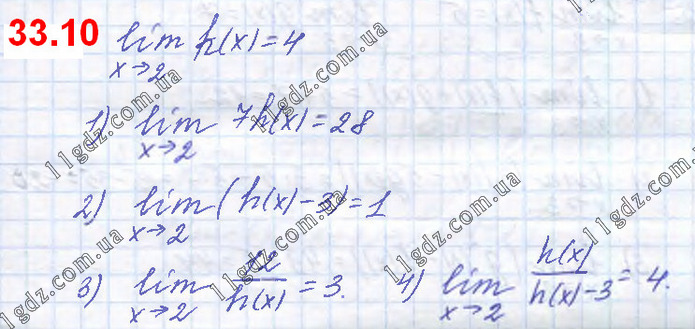 33.10 lim h(x) = 4
x→2
1) lim 7h(x) = 28
x→2
2) lim (h(x) - 3) = 1
x→2
3) lim 12/h(x) = 3. 4) lim h(x)/(h(x) - 3) = 4.
x→2 x→2
11gdz.com.ua
11gdz.com.ua
11gdz.com.ua
11gdz.com.ua
11gdz.com.ua
11gdz.com.ua